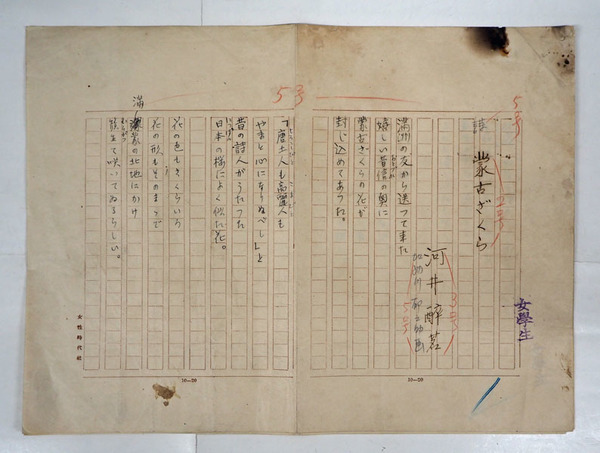 女學生
5号
詩
蒙古ざくら
2号
河井醉茗
3号
5号
満洲の友から送つて来た
嬉しい音信の奥に
蒙古ざくらの花が
封じ込めてあつた。
10—20
5号
「唐土人も高麗人も
やまと心になりぬべし」と
昔の詩人がうたつた
日本の桜によく似た花。
花の色もさくらいろ
花の形もそのままで
満蒙の北地にかけ
て咲いてゐるらしい。
女性時代社
10—20